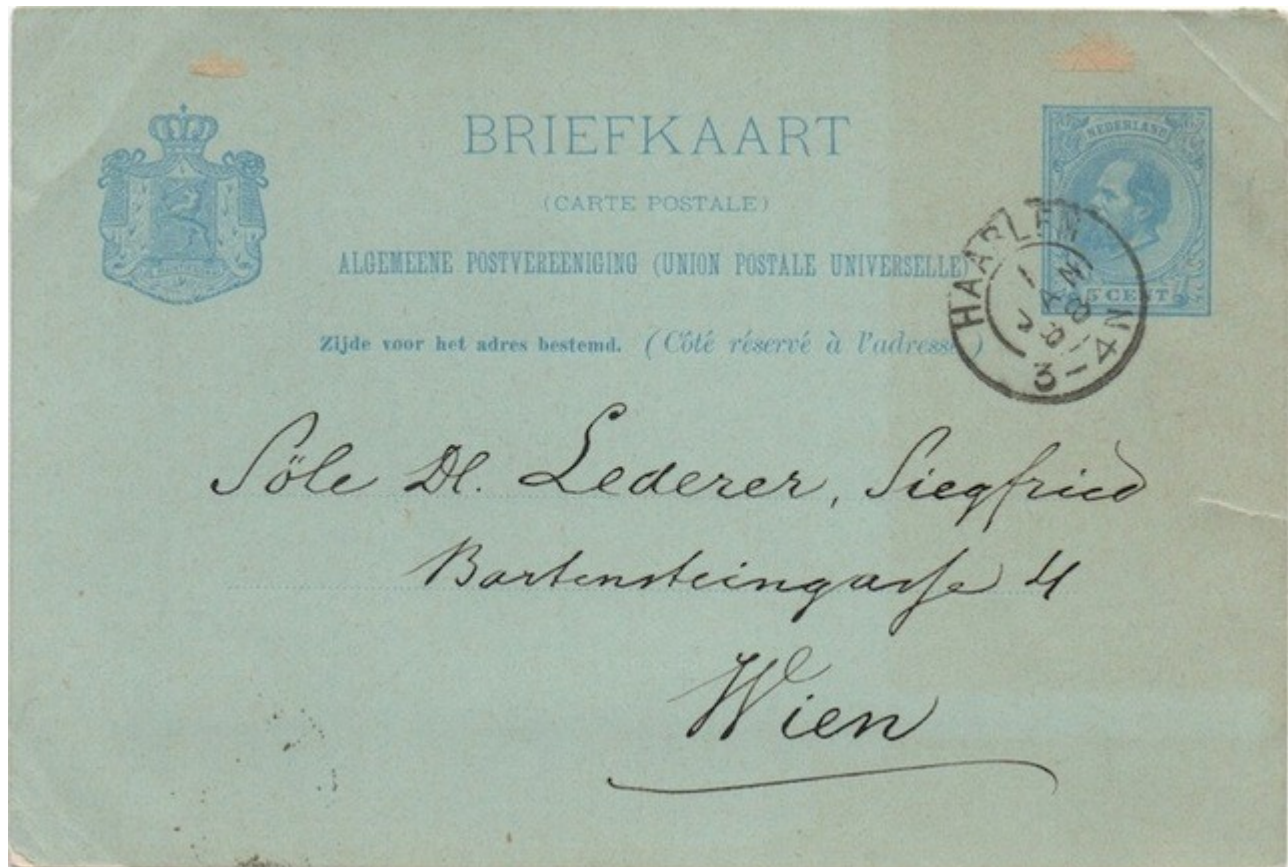 BRIEFKAART
(CARTE POSTALE)
ALGEMEENE POSTVEREENIGING (UNION POSTALE UNIVERSELLE)
Zijde voor het adres bestemd. (Côté réservé à l'adresse)
NEDERLAND
5 CENT
HAARLEM
1
JAN
88
3-4N
Lederer, Siegfried
Bartensteingasse 4
Wien